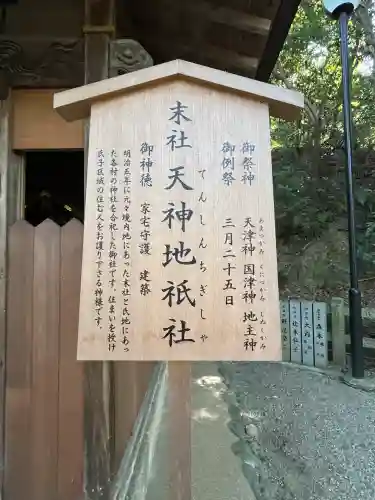 御祭神 天津神 国津神 地主神
あまつかみ くにつかみ じぬしかみ
御例祭 三月二十五日
末社 天神地祇社
てんしんちぎしゃ
御神徳 家宅守護 建築
明治五年に元々境内にあった末社と氏地にあっ
た各村の神社を合祀した御社です。住まいを授け
氏子区域の住む人々をお護り下さる神様です。